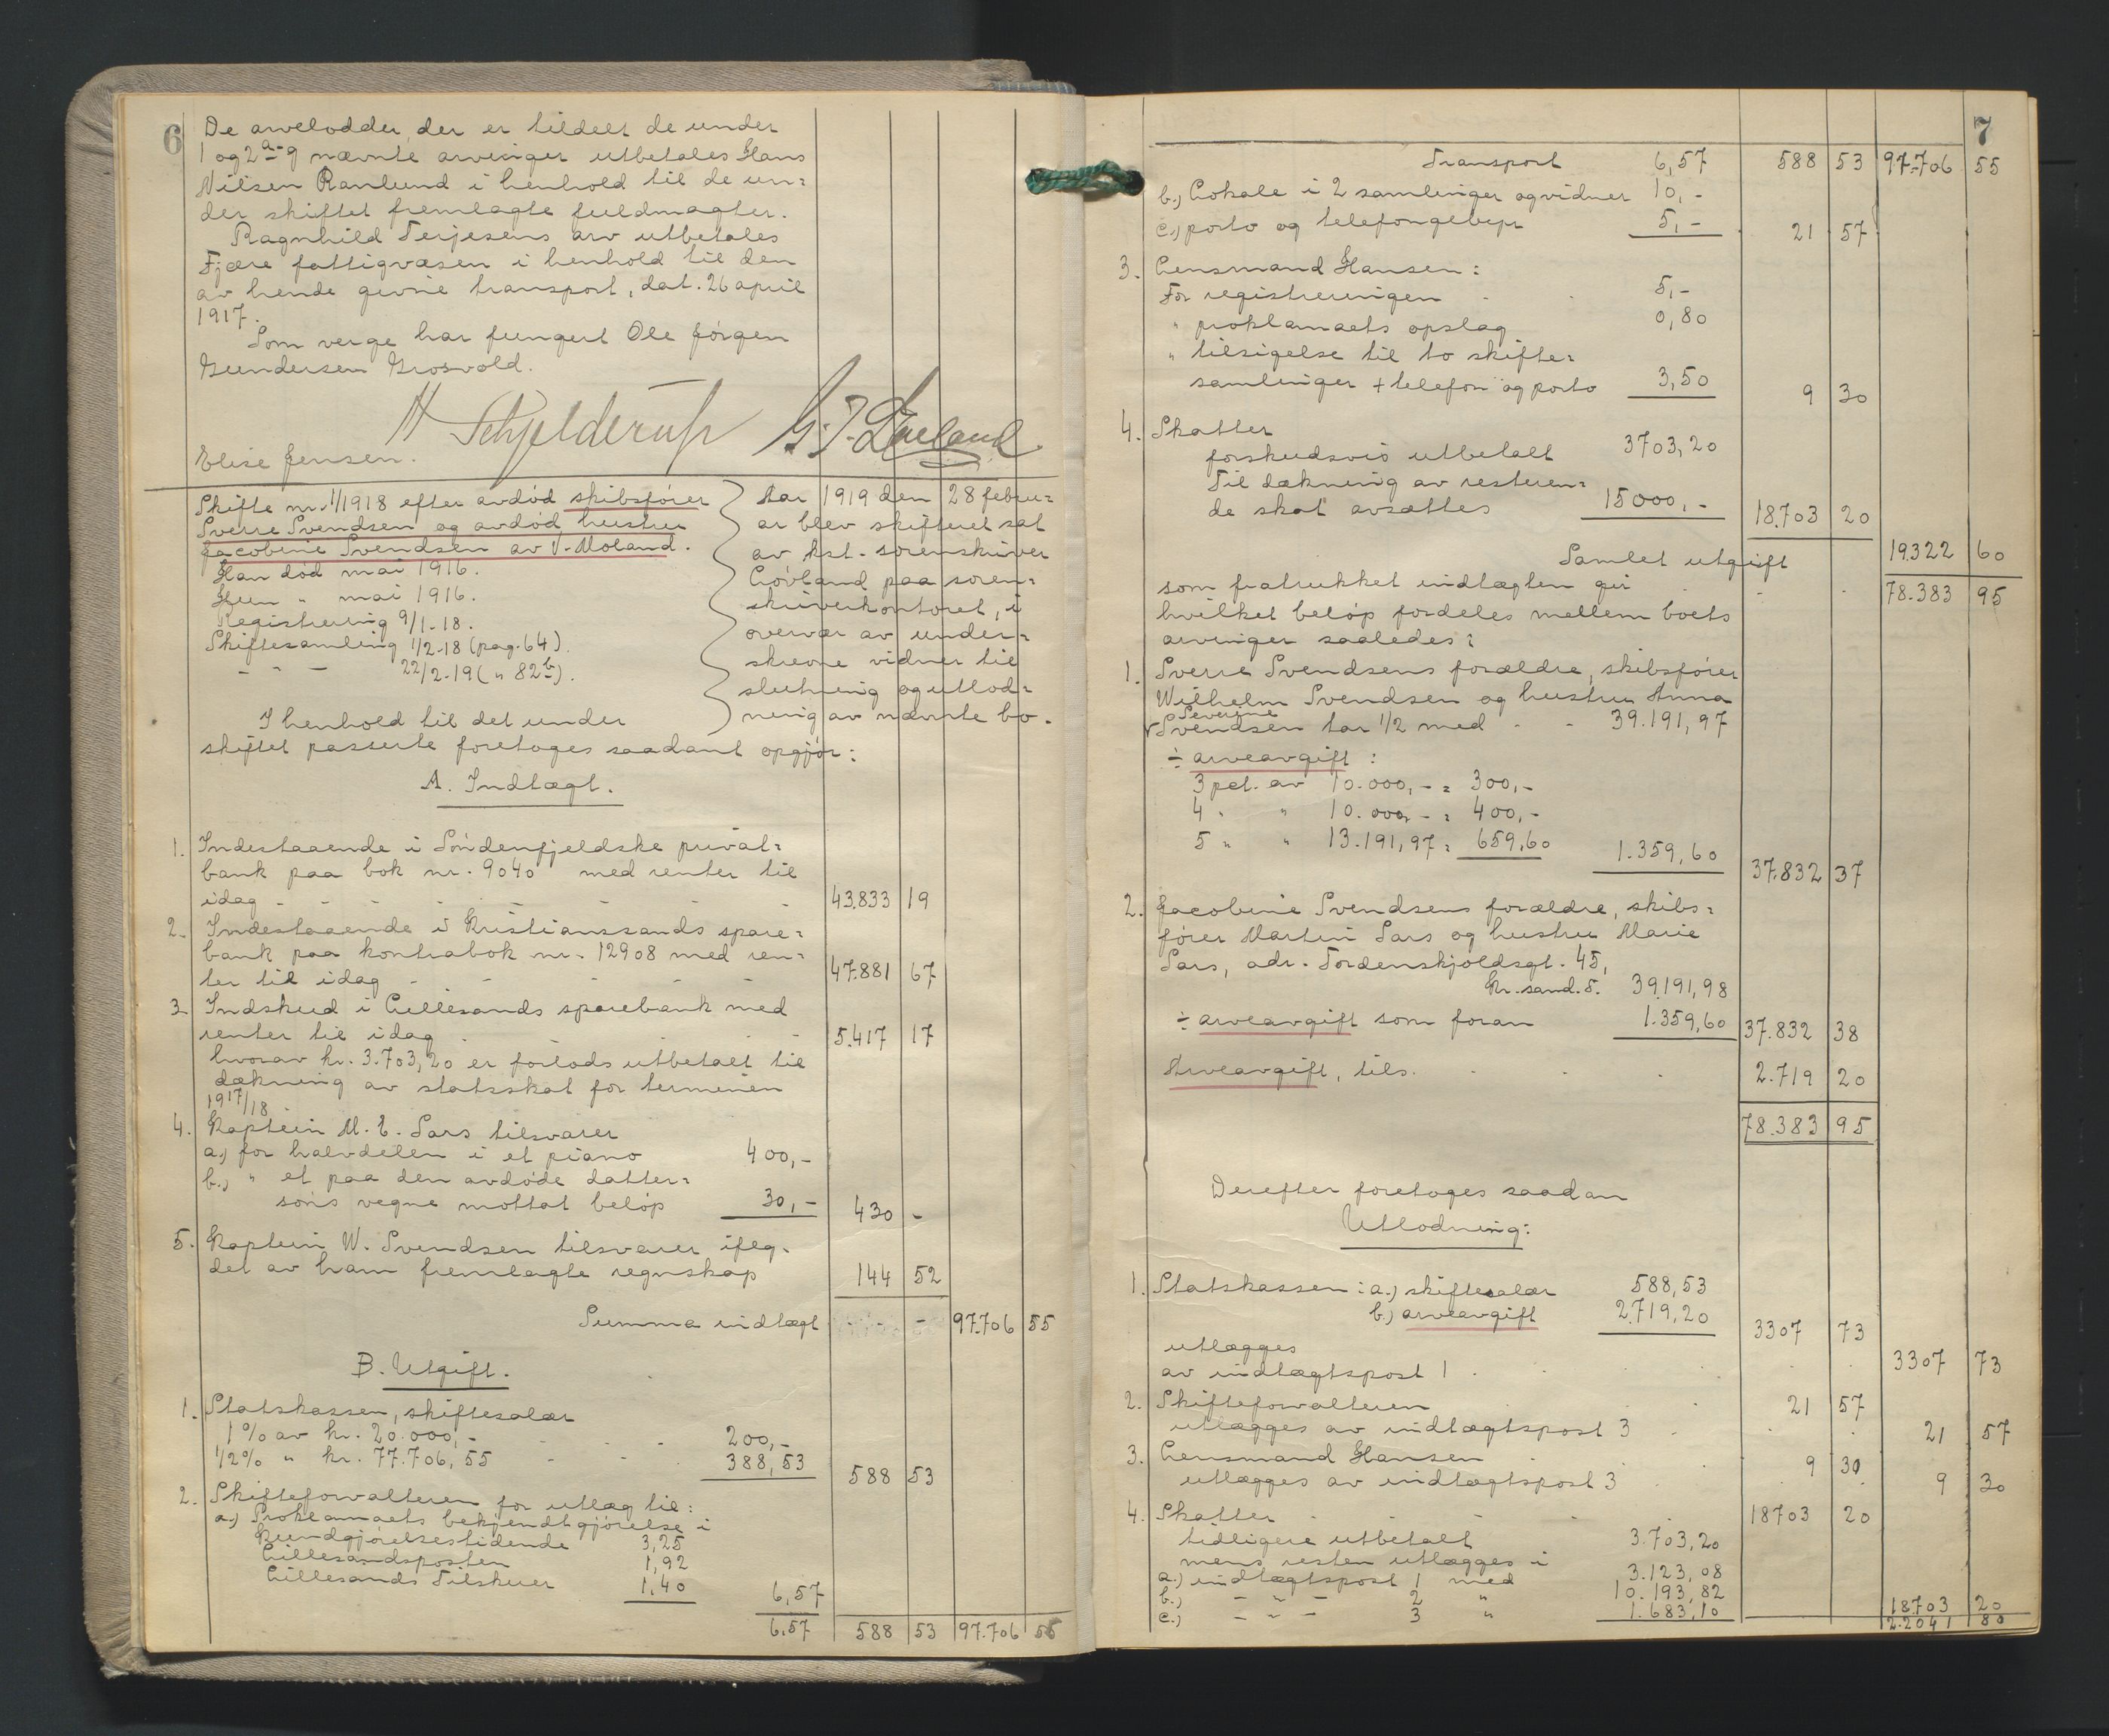 6
De arvelodder, der er tildelt de under
1 og 2 a-g nævnte arvinger utbetales Hans
Nilsen Ranlund i henhold til de un=
der skiftet fremlagte fuldmagter.
Ragnhild Terjesens arv utbetales
Fjære fattigvæsen i henhold til den
av hende givne transport, dat. 26 april
1917.
Som verge har fungert Ole Jörgen
Gundersen Grosvold.
H Schjelderup
Elise Jensen.
Skifte nr. 1/1918 efter avdöd skibsförer
Sverre Svendsen og avdöd hustru
Jacobine Svendsen av V. Moland.
Han död mai 1916.
Hun " mai 1916.
Registrering 9/1-18.
Skiftesamling 1/2-18 (pag. 64).
- " - 22/2-19 ( " 82b).
Aar 1919 den 28 febru=
ar blev skifteret sat
av kst. sorenskriver
Lövland paa soren=
skriverkontoret, i
overvær av under=
skrevne vidner til
slutning og utlod=
ning av nævnte bo.
I henhold til det under
skiftet passerte foretages saadant opgjör:
A. Indtægt.
1. Indestaaende i Söndenfjeldske privat=
bank paa bok nr. 9040 med renter til
idag - - - - - - 43.833 19
2. Indestaaende i Kristianssands spare=
bank paa kontrabok nr. 12908 med ren=
ter til idag - - - - 47.881 67
3. Indskud i Lillesands sparebank med
renter til idag - - - 5.417 17
hvorav kr. 3.703,20 er forlods utbetalt til
dækning av statsskat for terminen
1917/18.
4. Kaptein M. E. Lars tilsvarer
a.) for halvdelen i et piano 400,-
b.) " et paa den avdöde datter=
söns vegne mottat belöp 30,- 430 -
5. Kaptein W. Svendsen tilsvarer iflg.
det av ham fremlagte regnskap 144 52
Summa indtægt 97.706 55
B. Utgift.
1. Statskassen, skiftesalær
1 % av kr. 20.000,- - - - 200,-
1/2 % " kr. 77.706,55 - - 388,53 588 53
2. Skifteforvalteren for utlæg til:
a.) Proklamaets bekjendtgjörelse i
Kundgjörelsestidende 3,25
Lillesandsposten 1,92
Lillesands Tilskuer 1,40 6,57
6,57 588 53 97.706 55
7
Transport 6,57 588 53 97.706 55
b.) Lokale i 2 samlinger og vidner 10,-
c.) porto og telefongebyr 5,- 21 57
3. Lensmand Hansen:
For registreringen - - 5,-
" proklamaets opslag 0,80
" tilsigelse til to skifte=
samlinger + telefon og porto 3,50 9 30
4. Skatter
forskudsvis utbetalt 3703,20
Til dækning av resteren=
de skat avsættes 15000,- 18.703 20
Samlet utgift 19.322 60
som fratrukket indtægten gir - - - 78.383 95
hvilket belöp fordeles mellem boets
arvinger saaledes:
1. Sverre Svendsens forældre, skibsförer
Wilhelm Svendsen og hustru Anna
Severine
Svendsen tar 1/2 med - - 39.191,97
÷ arveavgift:
3 pct. av 10.000,- = 300,-
4 " " 10.000,- = 400,-
5 " " 13.191,97 = 659,60 1.359,60 37.832 37
2. Jacobine Svendsens forældre, skibs=
förer Martin Lars og hustru Marie
Lars, adr. Tordenskjoldsgt. 45,
Kr.sand. S. 39.191,98
÷ arveavgift som foran 1.359,60 37.832 38
Arveavgift, tils. - - - 2.719 20
78.383 95
Derefter foretages saadan
Utlodning:
1. Statskassen: a.) skiftesalær 588,53
b.) arveavgift 2.719,20 3307 73
utlægges
av indtægtspost 1 - - - 3307 73
2. Skifteforvalteren - - 21 57
utlægges av indtægtspost 3 - - 21 57
3. Lensmand Hansen - - 9 30
utlægges av indtægtspost 3 - - 9 30
4. Skatter - - - - 18703 20
tidligere utbetalt 3.703,20
mens resten utlægges i
a.) indtægtspost 1 med 3.123,08
b.) - " - 2 " 10.193,82
c.) - " - 3 " 1.683,10 18703 20
22041 80